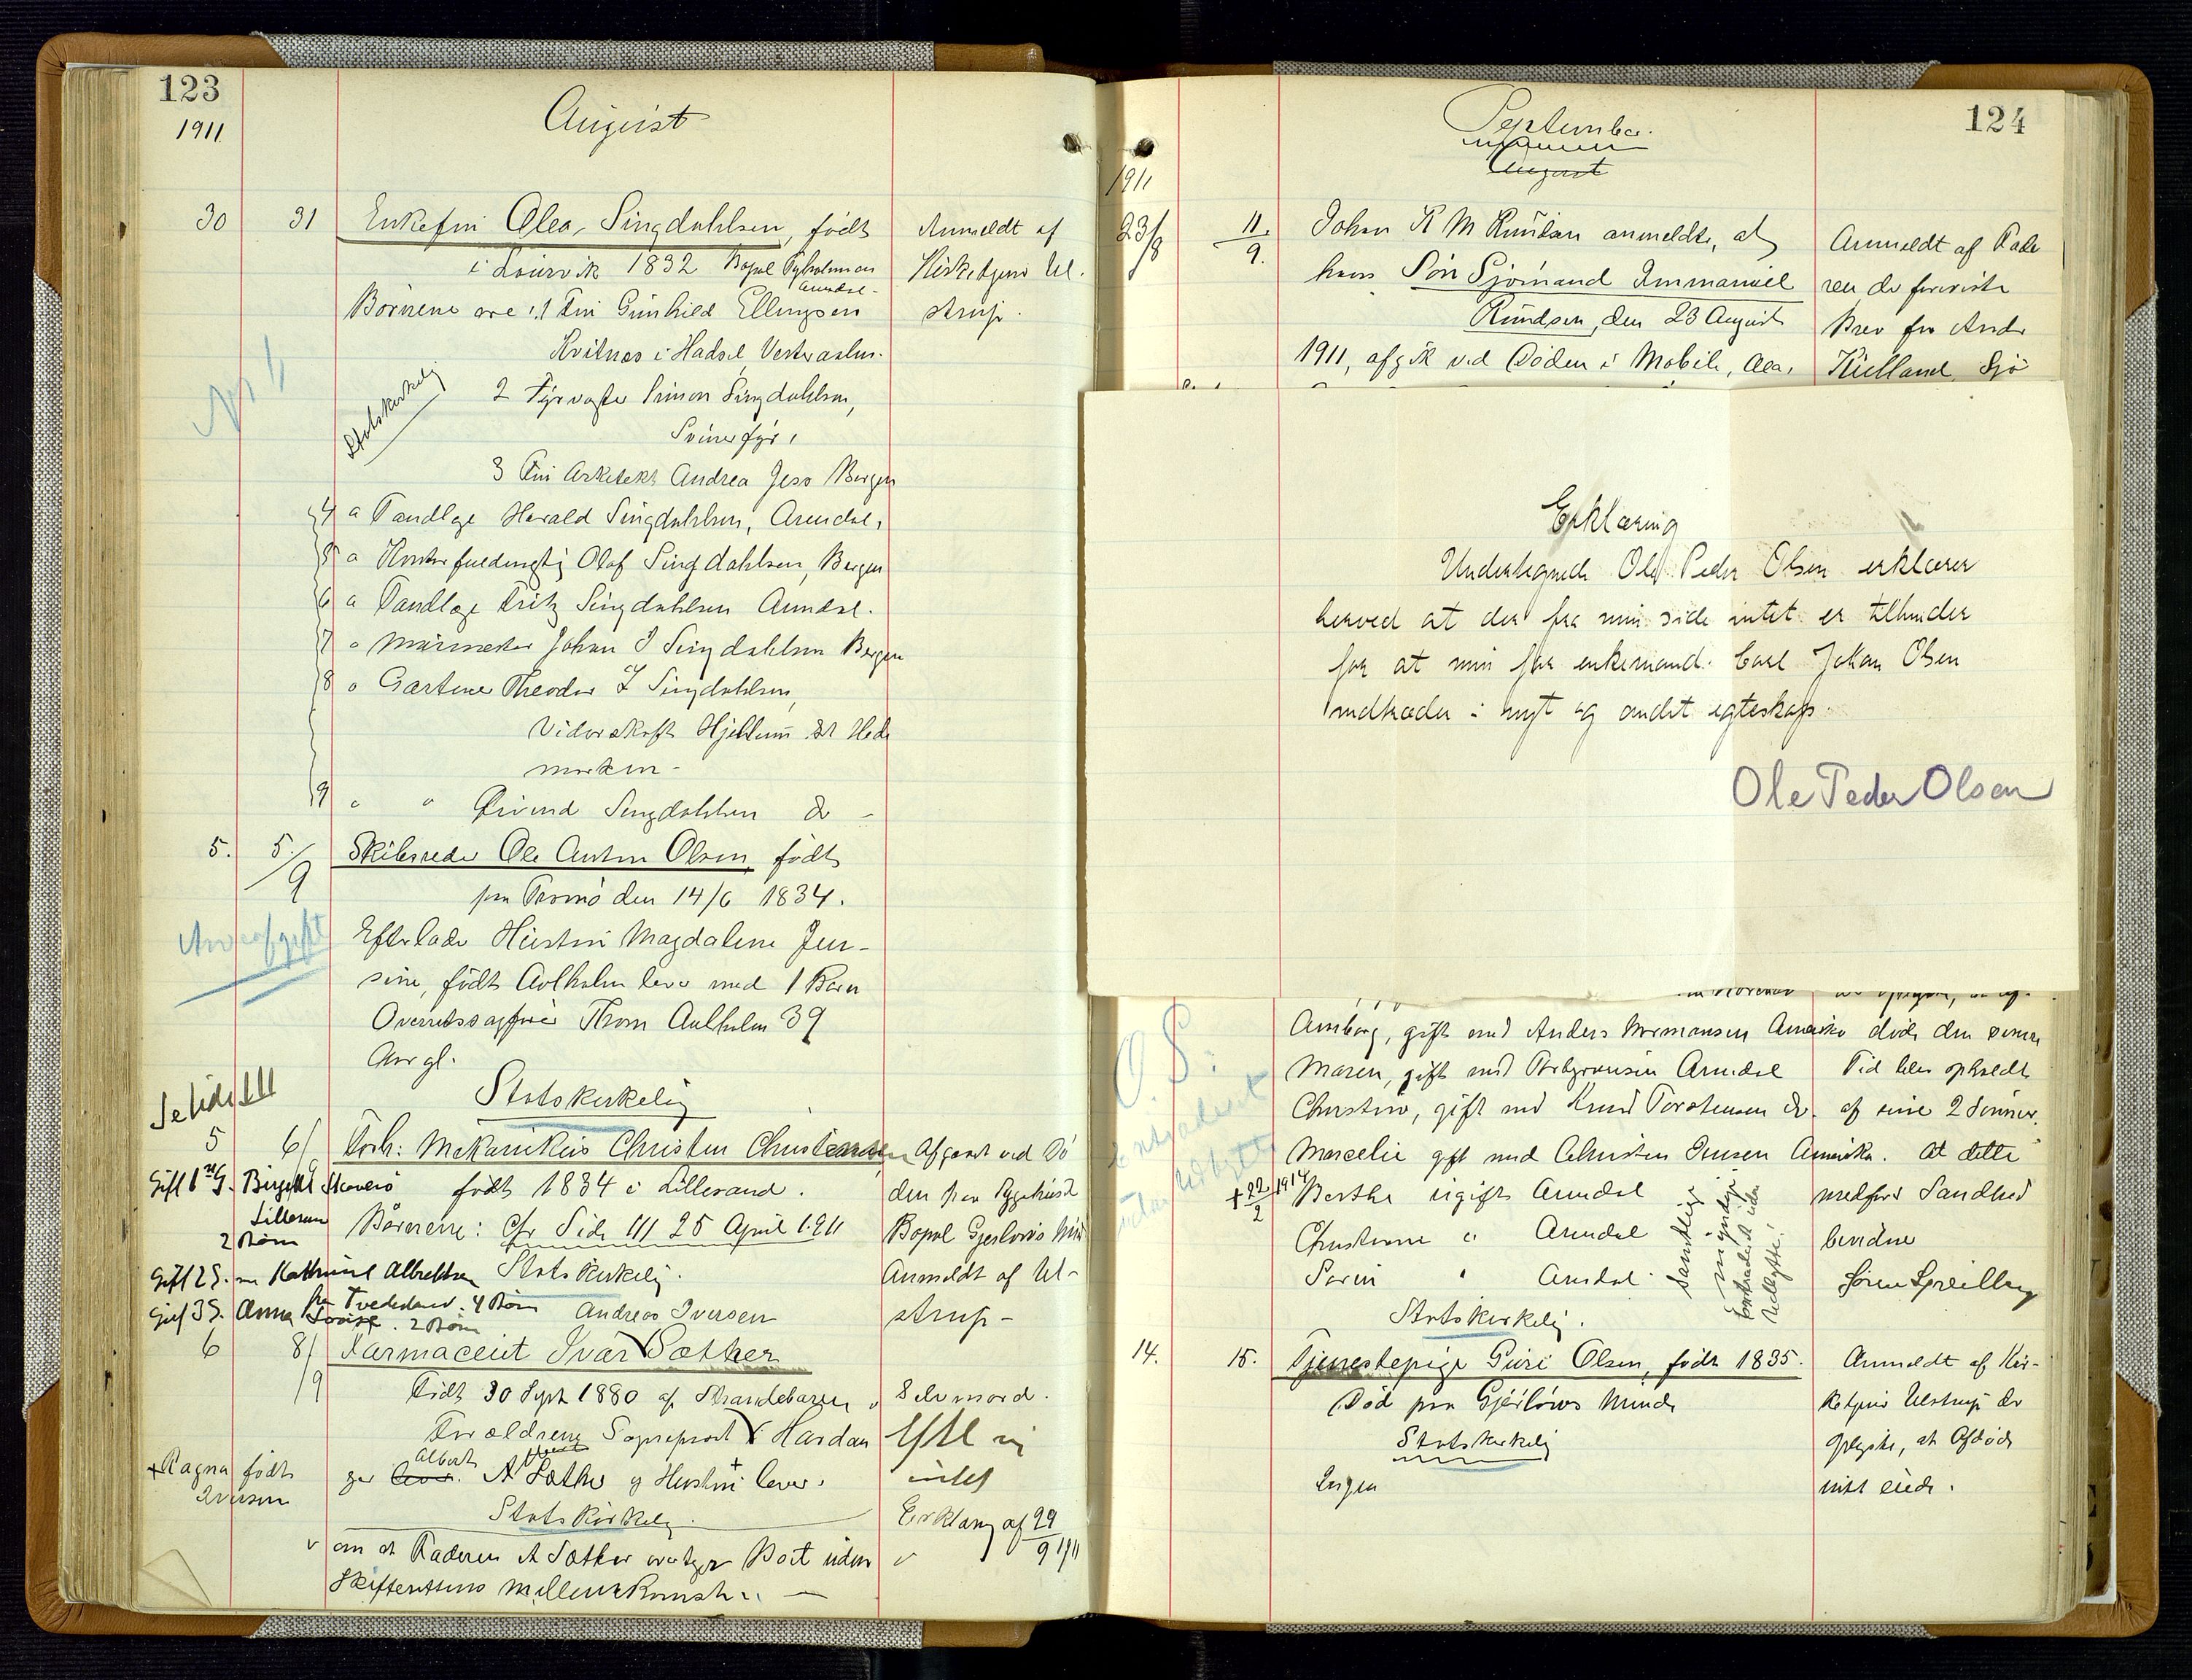 123
1911
August
30 31 Enkefru Olea Singdahlsen, født Anmeldt af
i Laurvik 1832 Bopæl Tyholmen Kirketjener Ul-
Arendal - strup.
Børnene ere: 1 Fru Gunhild Ellingsen
Kvitnes i Hadsel, Vesteraalen.
Statskirkelig
2 Fyrvogter Simon Singdahlsen,
Svinør fyr,
3 Fru Arkitekt Andrea Jess Bergen
4 a Tandlæge Harald Singdahlsen, Arendal,
5 a Kontorfuldmægtig Olaf Singdahlsen, Bergen
6 a Tandlæge Fritz Singdahlsen Arendal.
7 a Murmester Johan J Singdahlsen Bergen
8 a Gartner Theodor Singdahlsen,
Hjellum St Hede
marken -
9 " " Øivind Singdahlsen do -
5. 5/9 Skibsreder Ole Anton Olsen, født
paa Tromø den 14/6 1834.
Arveafgift
Efterlader Hustru Magdalene Jen-
sine, født Aalholm lever med 1 Barn
Overretssagfører Thom Aalholm 39
Aar gl.
Statskirkelig
Se Side 111
5 6/ Forh: Mekanikus Christen Christensen Afgaaet ved Dø
Gift 1ste G. Birgitte født 1834 i Lillesand. den paa Sygehuset
Lillesand
2 Børn Børnene: cfr Side 111 25 April 1911 Bopæl Gjerløws Minde
Gift 2 G. m Kathrine Albrettsen Statskirkelig. Anmeldt af Ul-
fra Tvedestrand. 4 Børn
Gift 3 G. Anna Lovise. 2 Børn Andreas Iversen strup -
6 8/9 Farmaceut Ivar Sæther
Født 30 Sept 1880 af Strandebarm Selvmord.
Forældrene Sogneprest i Hardan
+Ragna født Iversen
ger Albert A Sæther og Hustru + lever. intet
Statskirkelig Erklæring af 29/9 1911
v om at Faderen A Sæther overtager Boet uden v
Skifterettens Mellemkomst. -
124
September
August
1911
23/8 11/9. Johan K M Knudsen anmeldte, at Anmeldt af Fade
hans Søn Sjømand Immanuel ren der foreviste
Knudsen, den 23 August Brev fra Andr
1911, afgik ved Døden i Mobile, Ala, Kielland, Sjø
Erklæring
Undertegnede Ole Peder Olsen erklærer
herved at der fra min side intet er tilhinder
for at min far enkemand Carl Johan Olsen
indtræder i nyt og andet egteskap.
Ole Peder Olsen
O. S:
Amborg, gift med Anders Normansen Amerika døde den senere
Maren, gift med Arendal Tid blev opholdt
Christine, gift med Knud Torstensen do. af sine 2 Sønner.
Marcelie gift med Christen Jensen Amerika. At dette
+ 22/2 1914 Berthe ugift Arendal medføres Sandhed
Christiane " Arendal bevidner
Sørine " Arendal. Søren
Samtlige myndige
Statskirkelig.
14. 15. Tjenestepige Guri Olsen, født 1835. Anmeldt af Kir-
Død paa Gjerløws Minde ketjener Ulstrup der
Statskirkelig oplyste, at Afdøde
Ingen intet eiede.